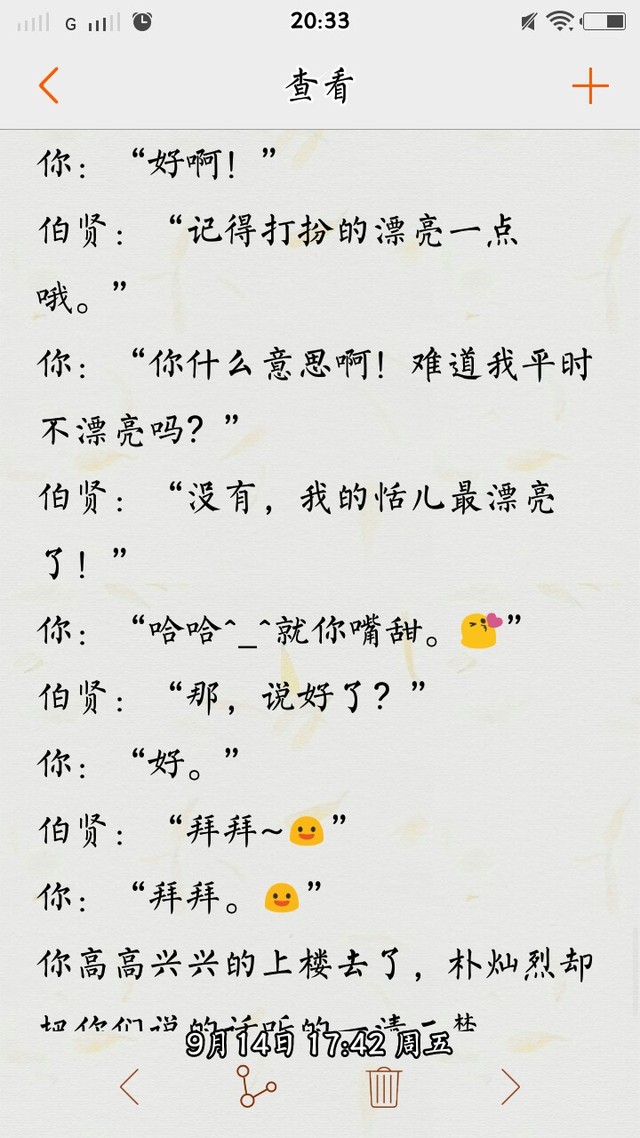 G
20:33
查看
你：“好啊！”
伯贤：“记得打扮的漂亮一点
哦。”
你：“你什么意思啊！难道我平时
不漂亮吗？”
伯贤：“没有，我的恬儿最漂亮
了！”
你：“哈哈^_^就你嘴甜。😘”
伯贤：“那，说好了？”
你：“好。”
伯贤：“拜拜~😃”
你：“拜拜。😃”
你高高兴兴的上楼去了，朴灿烈却
把你们说的话听的一清二楚
9月14日 17:42 周五